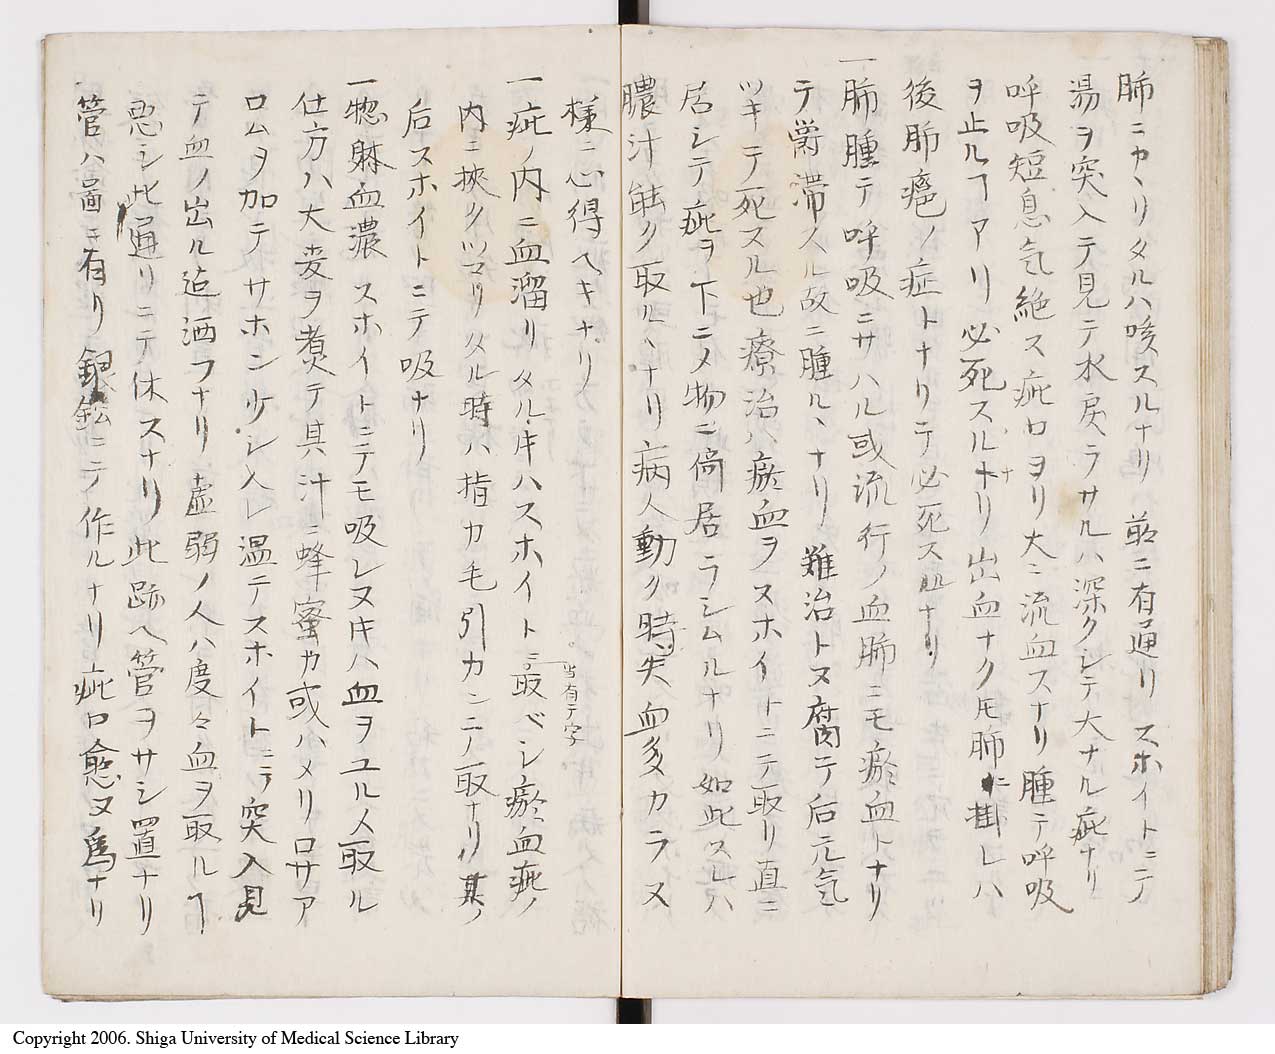 肺ニカヽリタルハ咳スルナリ 前ニ有通リ スホイトニテ
湯ヲ突入テ見テ水戻ラサルハ深クシテ大ナル疵ナリ
呼吸短息気絶ス疵口ヨリ大ニ流血スナリ腫テ呼吸
ヲ止ルヿアリ必死スルナリ出血ナク𪜈肺ニ掛レハ
後肺癰ノ症トナリテ必死スルナリ
一肺腫テ呼吸ニサハル或流行ノ血肺ニモ瘀血トナリ
テ欝滞スル故ニ腫ルヽナリ難治トス腐テ后元気
ツキテ死スル也療治ハ瘀血ヲスホイトニテ取リ直ニ
居シテ疵ヲ下ニ〆物ニ倚居ラシムルナリ如此スレハ
膿汁能ク取ルヽナリ病人動ク時失血多カラス
様ニ心得ヘキナリ
一疵ノ内ニ血溜リタルキハスホイトニ取ベシ瘀血疵ノ
当有テ字
内ニ挾クツマリタル時ハ指カ毛引カンニノ取ナリ其ノ
后スホイトニテ吸ナリ
一惣躰血濃スホイトニテモ吸レヌキハ血ヲユルメ取ル
仕方ハ大麦ヲ煮テ其汁ニ蜂蜜カ或ハメリロサア
ロムヲ加テサホンケシ入レ温テスホイトニテ突入見
テ血ノ出ル迄洒フナリ虚弱ノ人ハ度々血ヲ取ルヿ
悪シ此通リニテ休スナリ此跡ヘ管ヲサシ置ナリ
管ハ圖ニ有リ銀鉛ニテ作ルナリ疵口愈ヌ爲ナリ